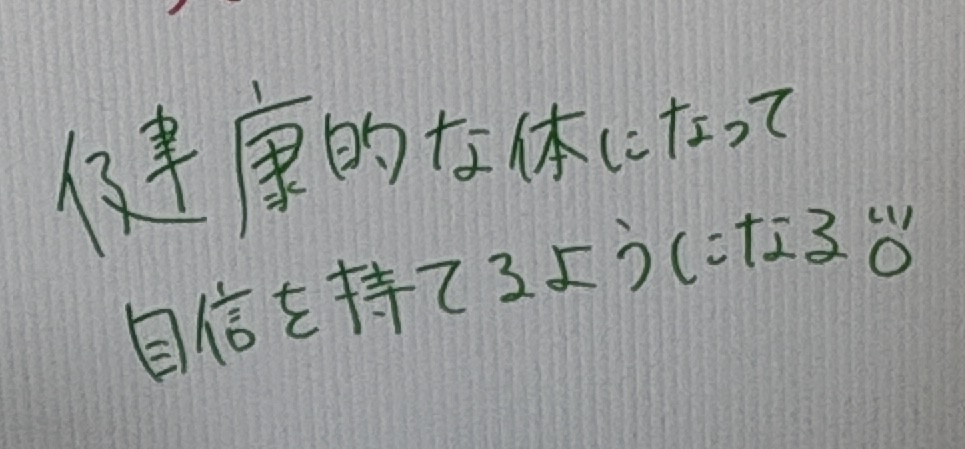 健康的な体になって
自信を持てるようになる